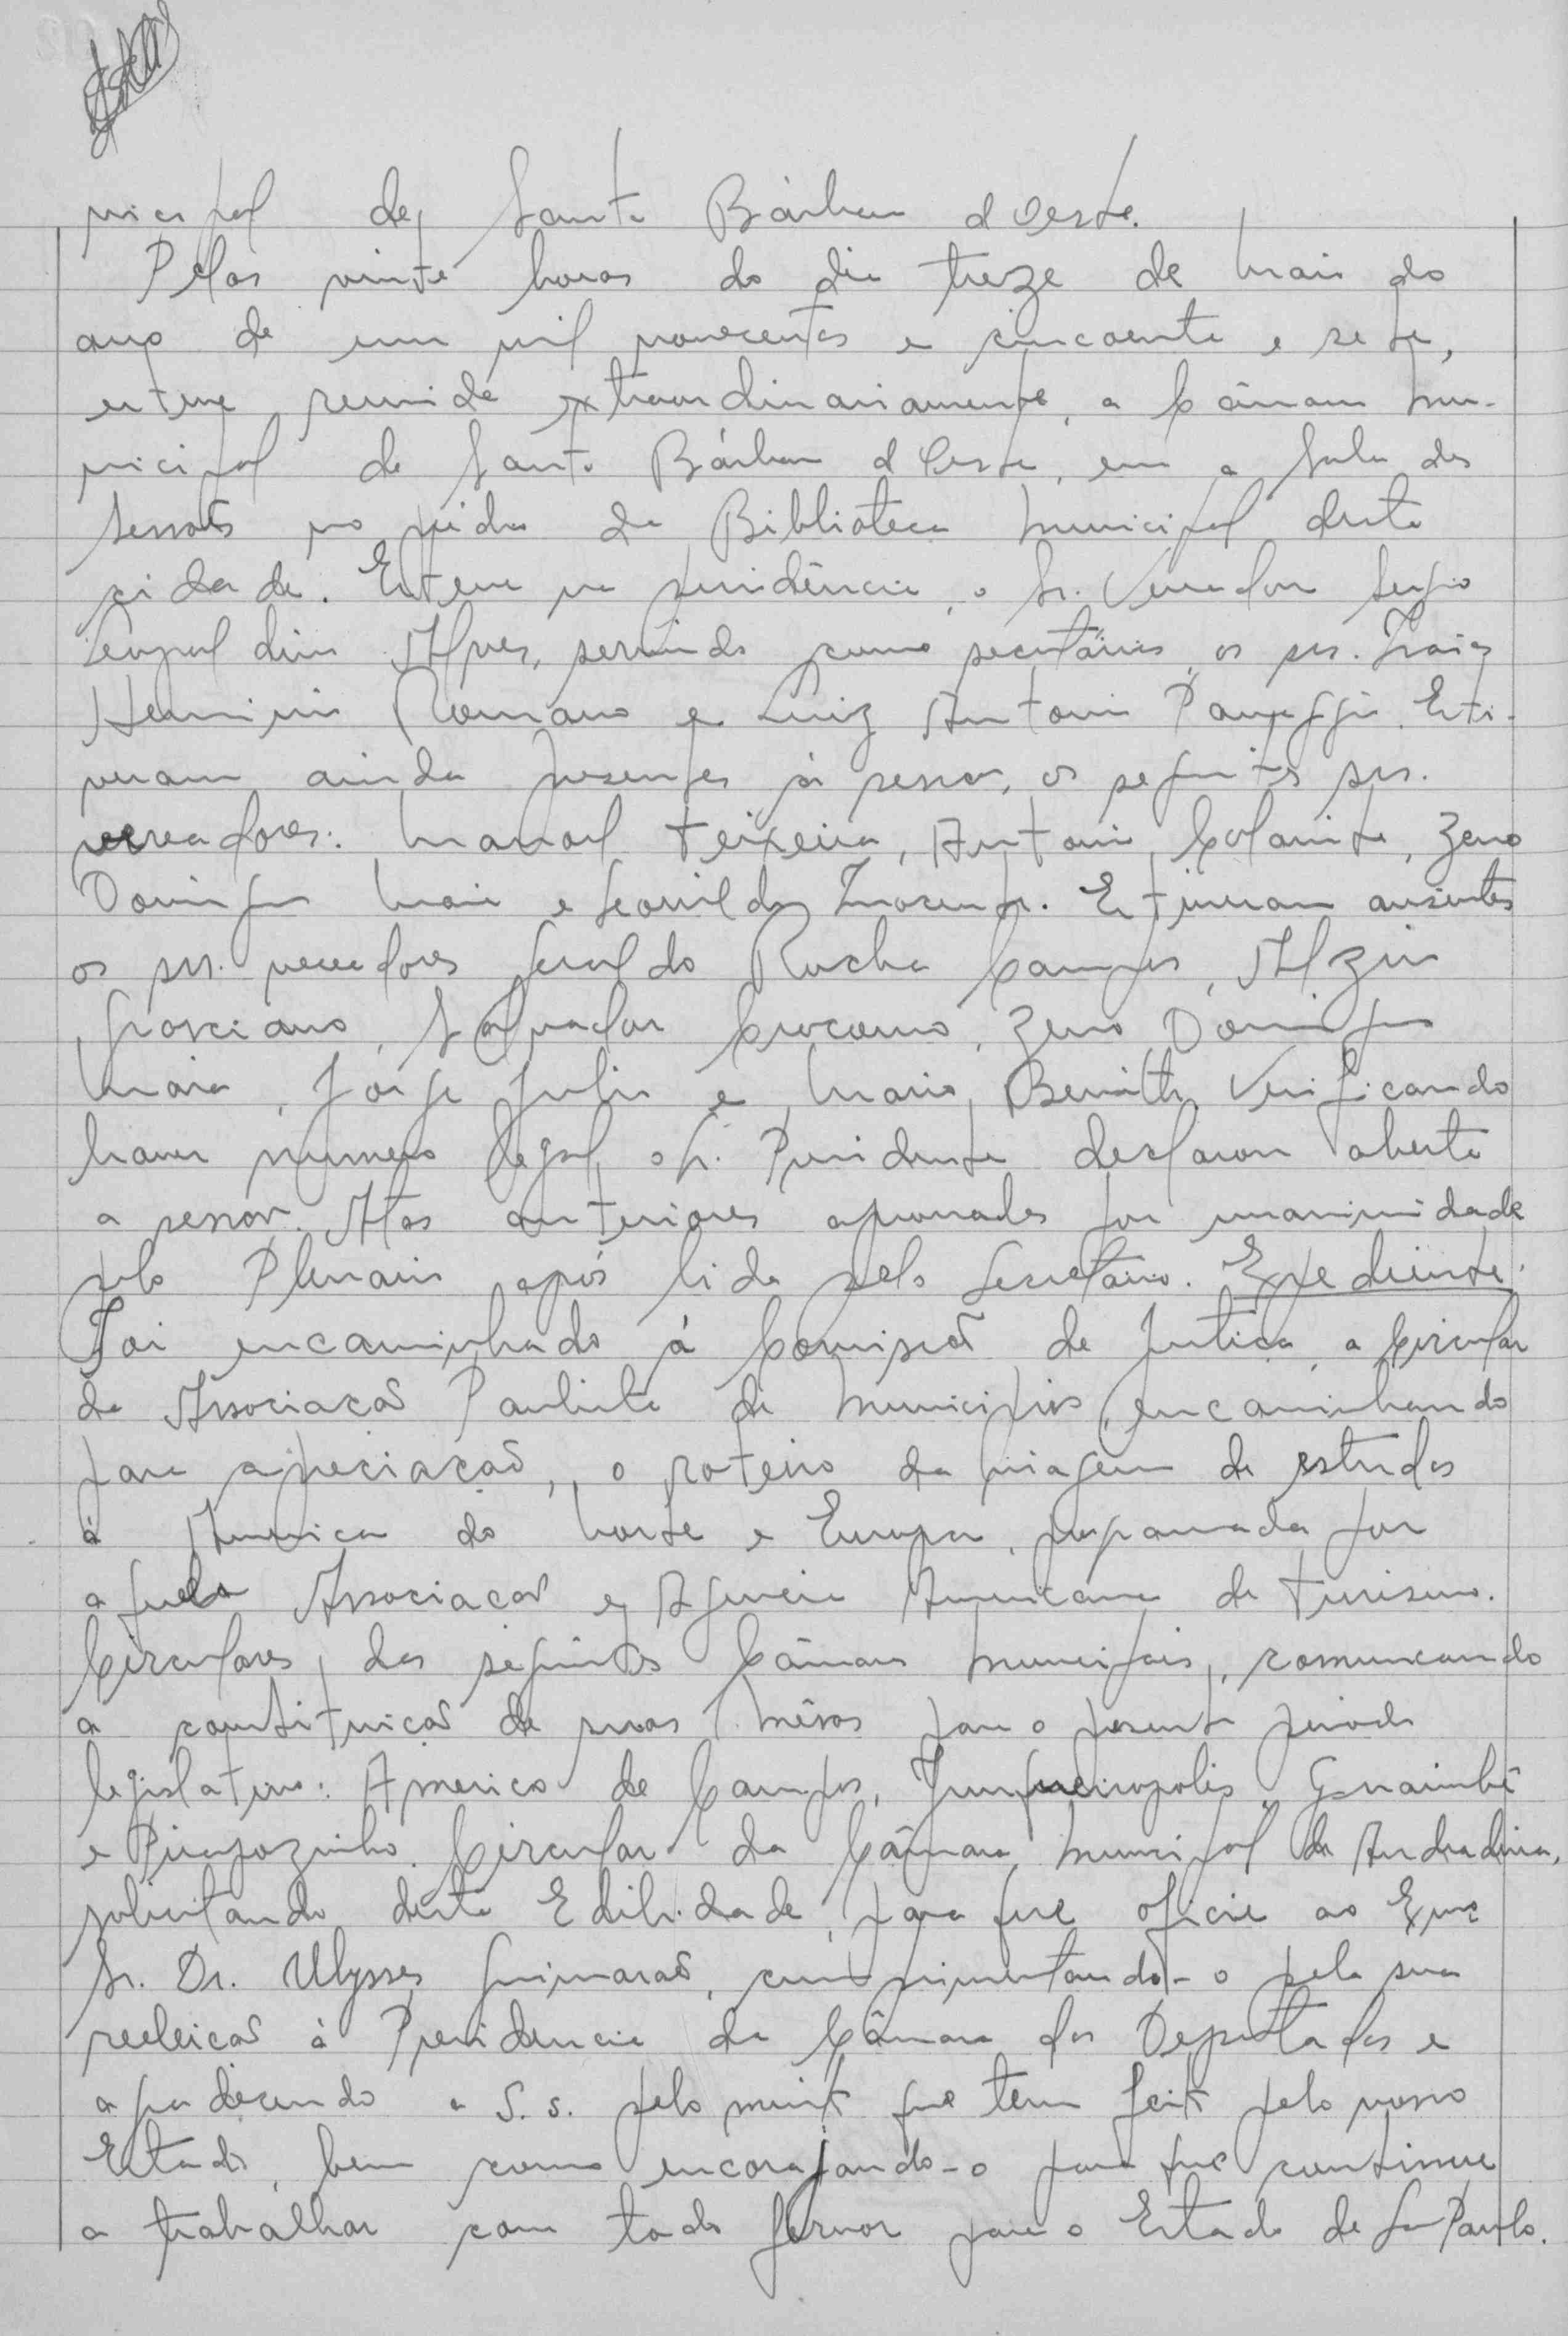 nicipal de Santa Bárbara d'Oeste.
Pelas vinte horas do dia treze de maio do
ano de um mil novecentos e cincoenta e sete,
esteve reunida extraordinariamente, a Câmara Mu-
nicipal de Santa Bárbara d'Oeste, em a Sala das
Sessões no prédio da Biblioteca Municipal desta
cidade. Esteve na presidência, o Sr. Vereador Sergio
Leopoldino Alves, servindo como secretários, os srs. Isaias
Herminio Romano e Luiz Antonio Panaggio. Esti-
veram ainda presentes à sessão, os seguintes srs.
vereadores: Manoel Teixeira, Antonio, Zeno
Domingos Maia e Leonildo. Estiveram ausentes
os srs. vereadores Geraldo Rocha Campos, Alziro
Salvador, Zeno Domingos
Maia, Jorge Julio e Mario. Verificando
haver numero legal, o Sr. Presidente declarou aberta
a sessão. Atas anteriores aprovadas por unanimidade
pelo Plenario após lida pelo Secretário. Expediente:
Foi encaminhado à Comissão de Justiça, a Circular
da Associação Paulista de Municipios, encaminhando
para apreciação, o roteiro da viagem de estudos
à America do Norte e Europa, programada por
aquela Associação e Agencia Americana de Turismo.
Circulares das seguintes Câmaras Municipais, comunicando
a constituição de suas Mêsas para o presente periodo
legislativo: Americo de Campos, Junqueiropolis, Guaimbê
e Pirapozinho. Circular da Câmara Municipal de Andradina,
solicitando desta Edilidade, para que oficie ao Exmº
Sr. Dr. Ulysses Guimarães, cumprimentando-o pela sua
reeleição à Presidencia da Câmara dos Deputados e
agradecendo a S. S. pelo muito que tem feito pelo nosso
Estado, bem como encorajando-o para que continue
a trabalhar com todo fervor para o Estado de São Paulo.